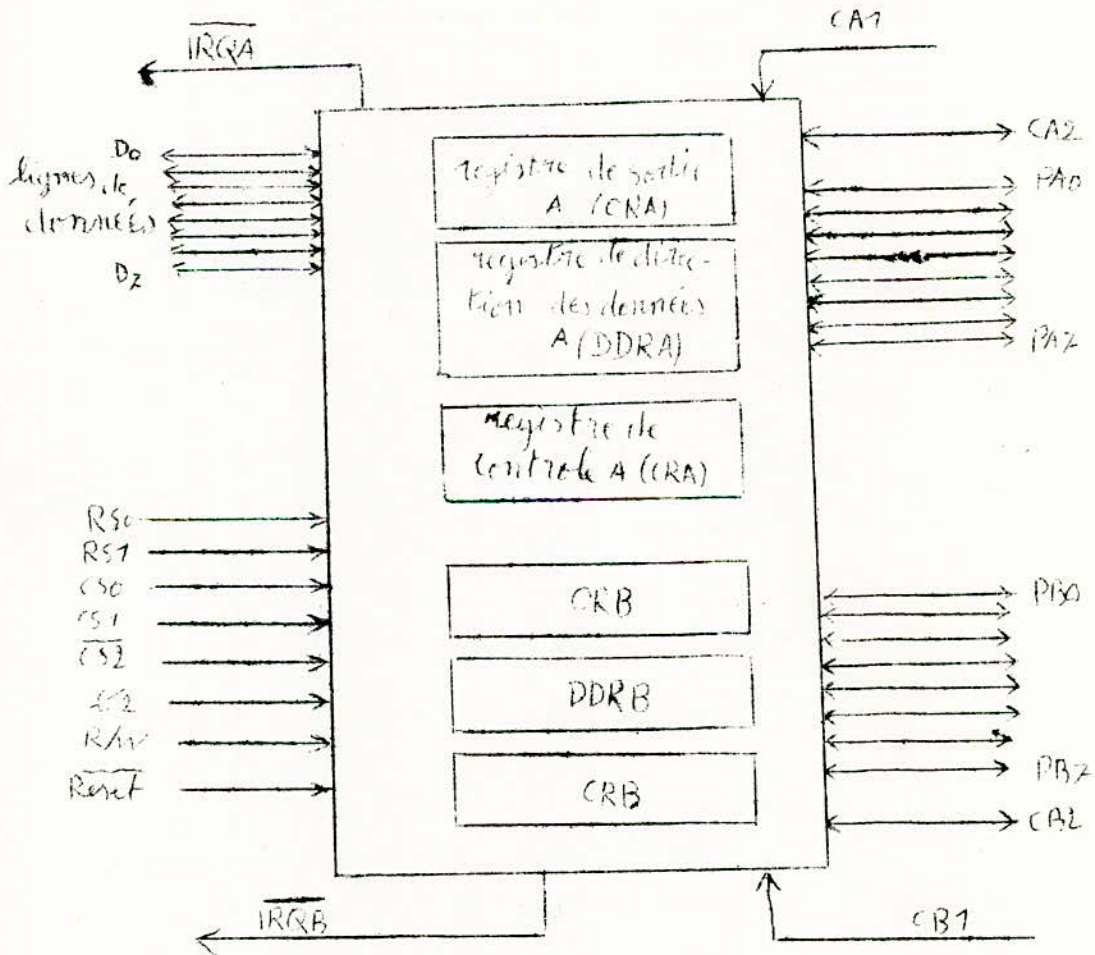 IRQA
CA1
D0
lignes de
données
D7
registre de sortie
A (CNA)
registre de direc-
tion des données
A (DDRA)
registre de
controle A (CRA)
CA2
PA0
PA7
RS0
RS1
CS0
CS1
CS2
R/W
Reset
CRB
DDRB
CRB
PB0
PB7
CB2
IRQB
CB1